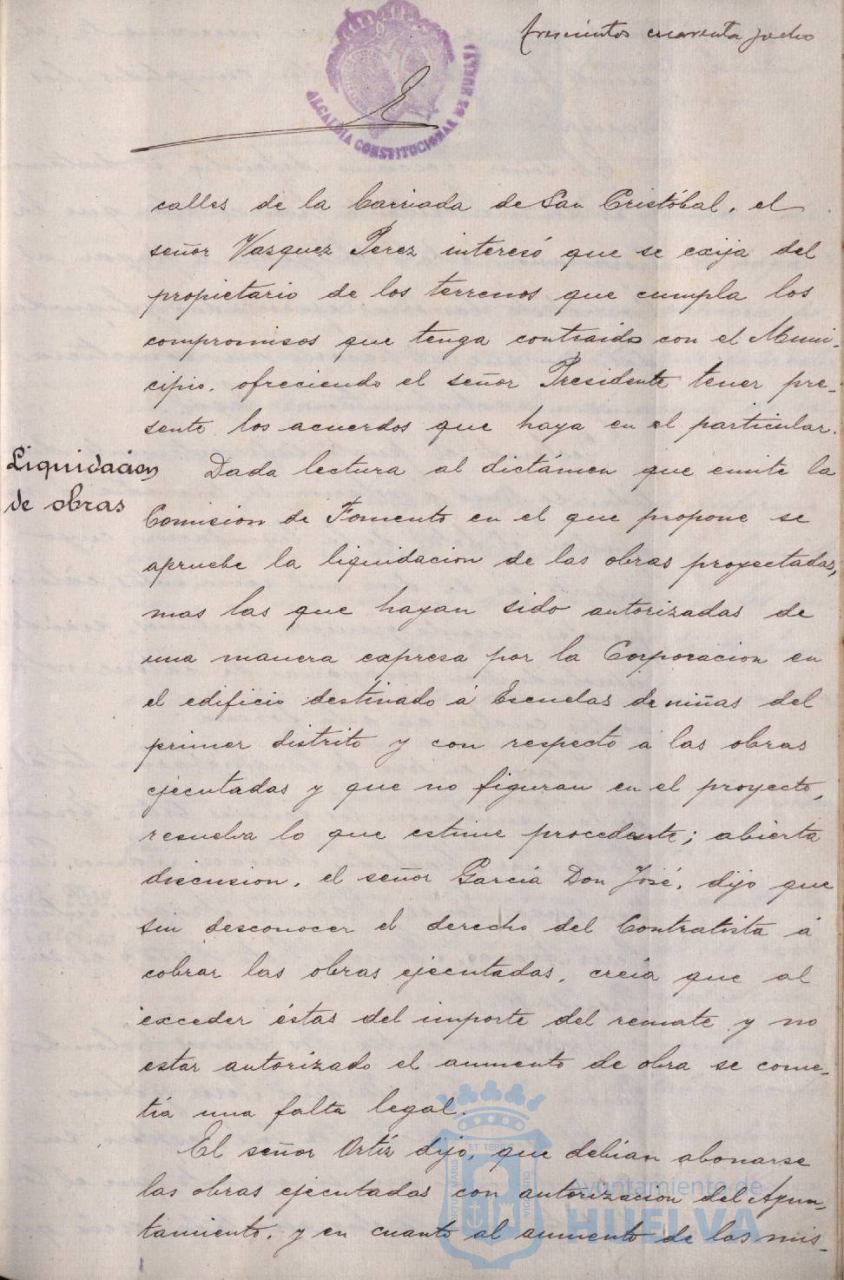 trescientos cuarenta y ocho
ALCALDIA CONSTITUCIONAL DE HUELVA
calles de la barriada de San Cristóbal, el
señor Vazquez Perez interesó que se exija del
propietario de los terrenos que cumpla los
compromisos que tenga contraido con el Muni-
cipio, ofreciendo el señor Presidente tener pre-
sente los acuerdos que haya en el particular.
Liquidacion
de obras
Dada lectura al dictámen que emite la
Comision de Fomento en el que propone se
apruebe la liquidacion de las obras proyectadas,
mas las que hayan sido autorizadas de
una manera expresa por la Corporacion en
el edificio destinado á Escuelas de niñas del
primer distrito y con respecto á las obras
ejecutadas y que no figuran en el proyecto,
resuelva lo que estime procedente; abierta
discusion, el señor García Don José, dijo que
sin desconocer el derecho del Contratista á
cobrar las obras ejecutadas, creia que al
exceder éstas del importe del remate y no
estar autorizado el aumento de obra se come-
tia una falta legal.
El señor Ortíz dijo, que debian abonarse
las obras ejecutadas con autorizacion del Ayun-
tamiento, y en cuanto al aumento de las mis-
Ayuntamiento de
HUELVA